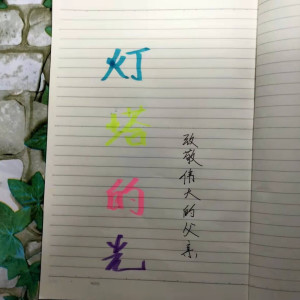 灯塔的光
致敬伟大的父亲